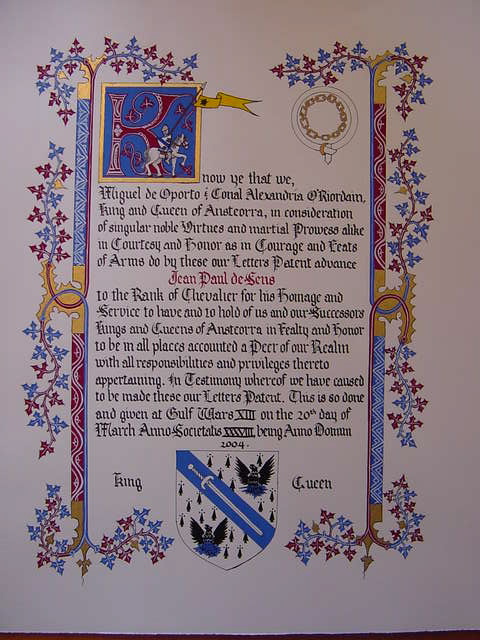 Know ye that we,
Miguel de Oporto & Conal Alexandria O'Riordain,
King and Queen of Ansteorra, in consideration
of singular noble Virtues and martial Prowess alike
in Courtesy and Honor as in Courage and Feats
of Arms do by these our Letters Patent advance
Jean Paul de Sens
to the Rank of Chevalier for his Homage and
Service to have and to hold of us and our Successors
Kings and Queens of Ansteorra in Fealty and Honor
to be in all places accounted a Peer of our Realm
with all responsibilities and privileges thereto
appertaining. In Testimony whereof we have caused
to be made these our Letters Patent. This is so done
and given at Gulf Wars XIII on the 20th day of
March Anno Societatis XXXVIII, being Anno Domini
2004.
King Queen